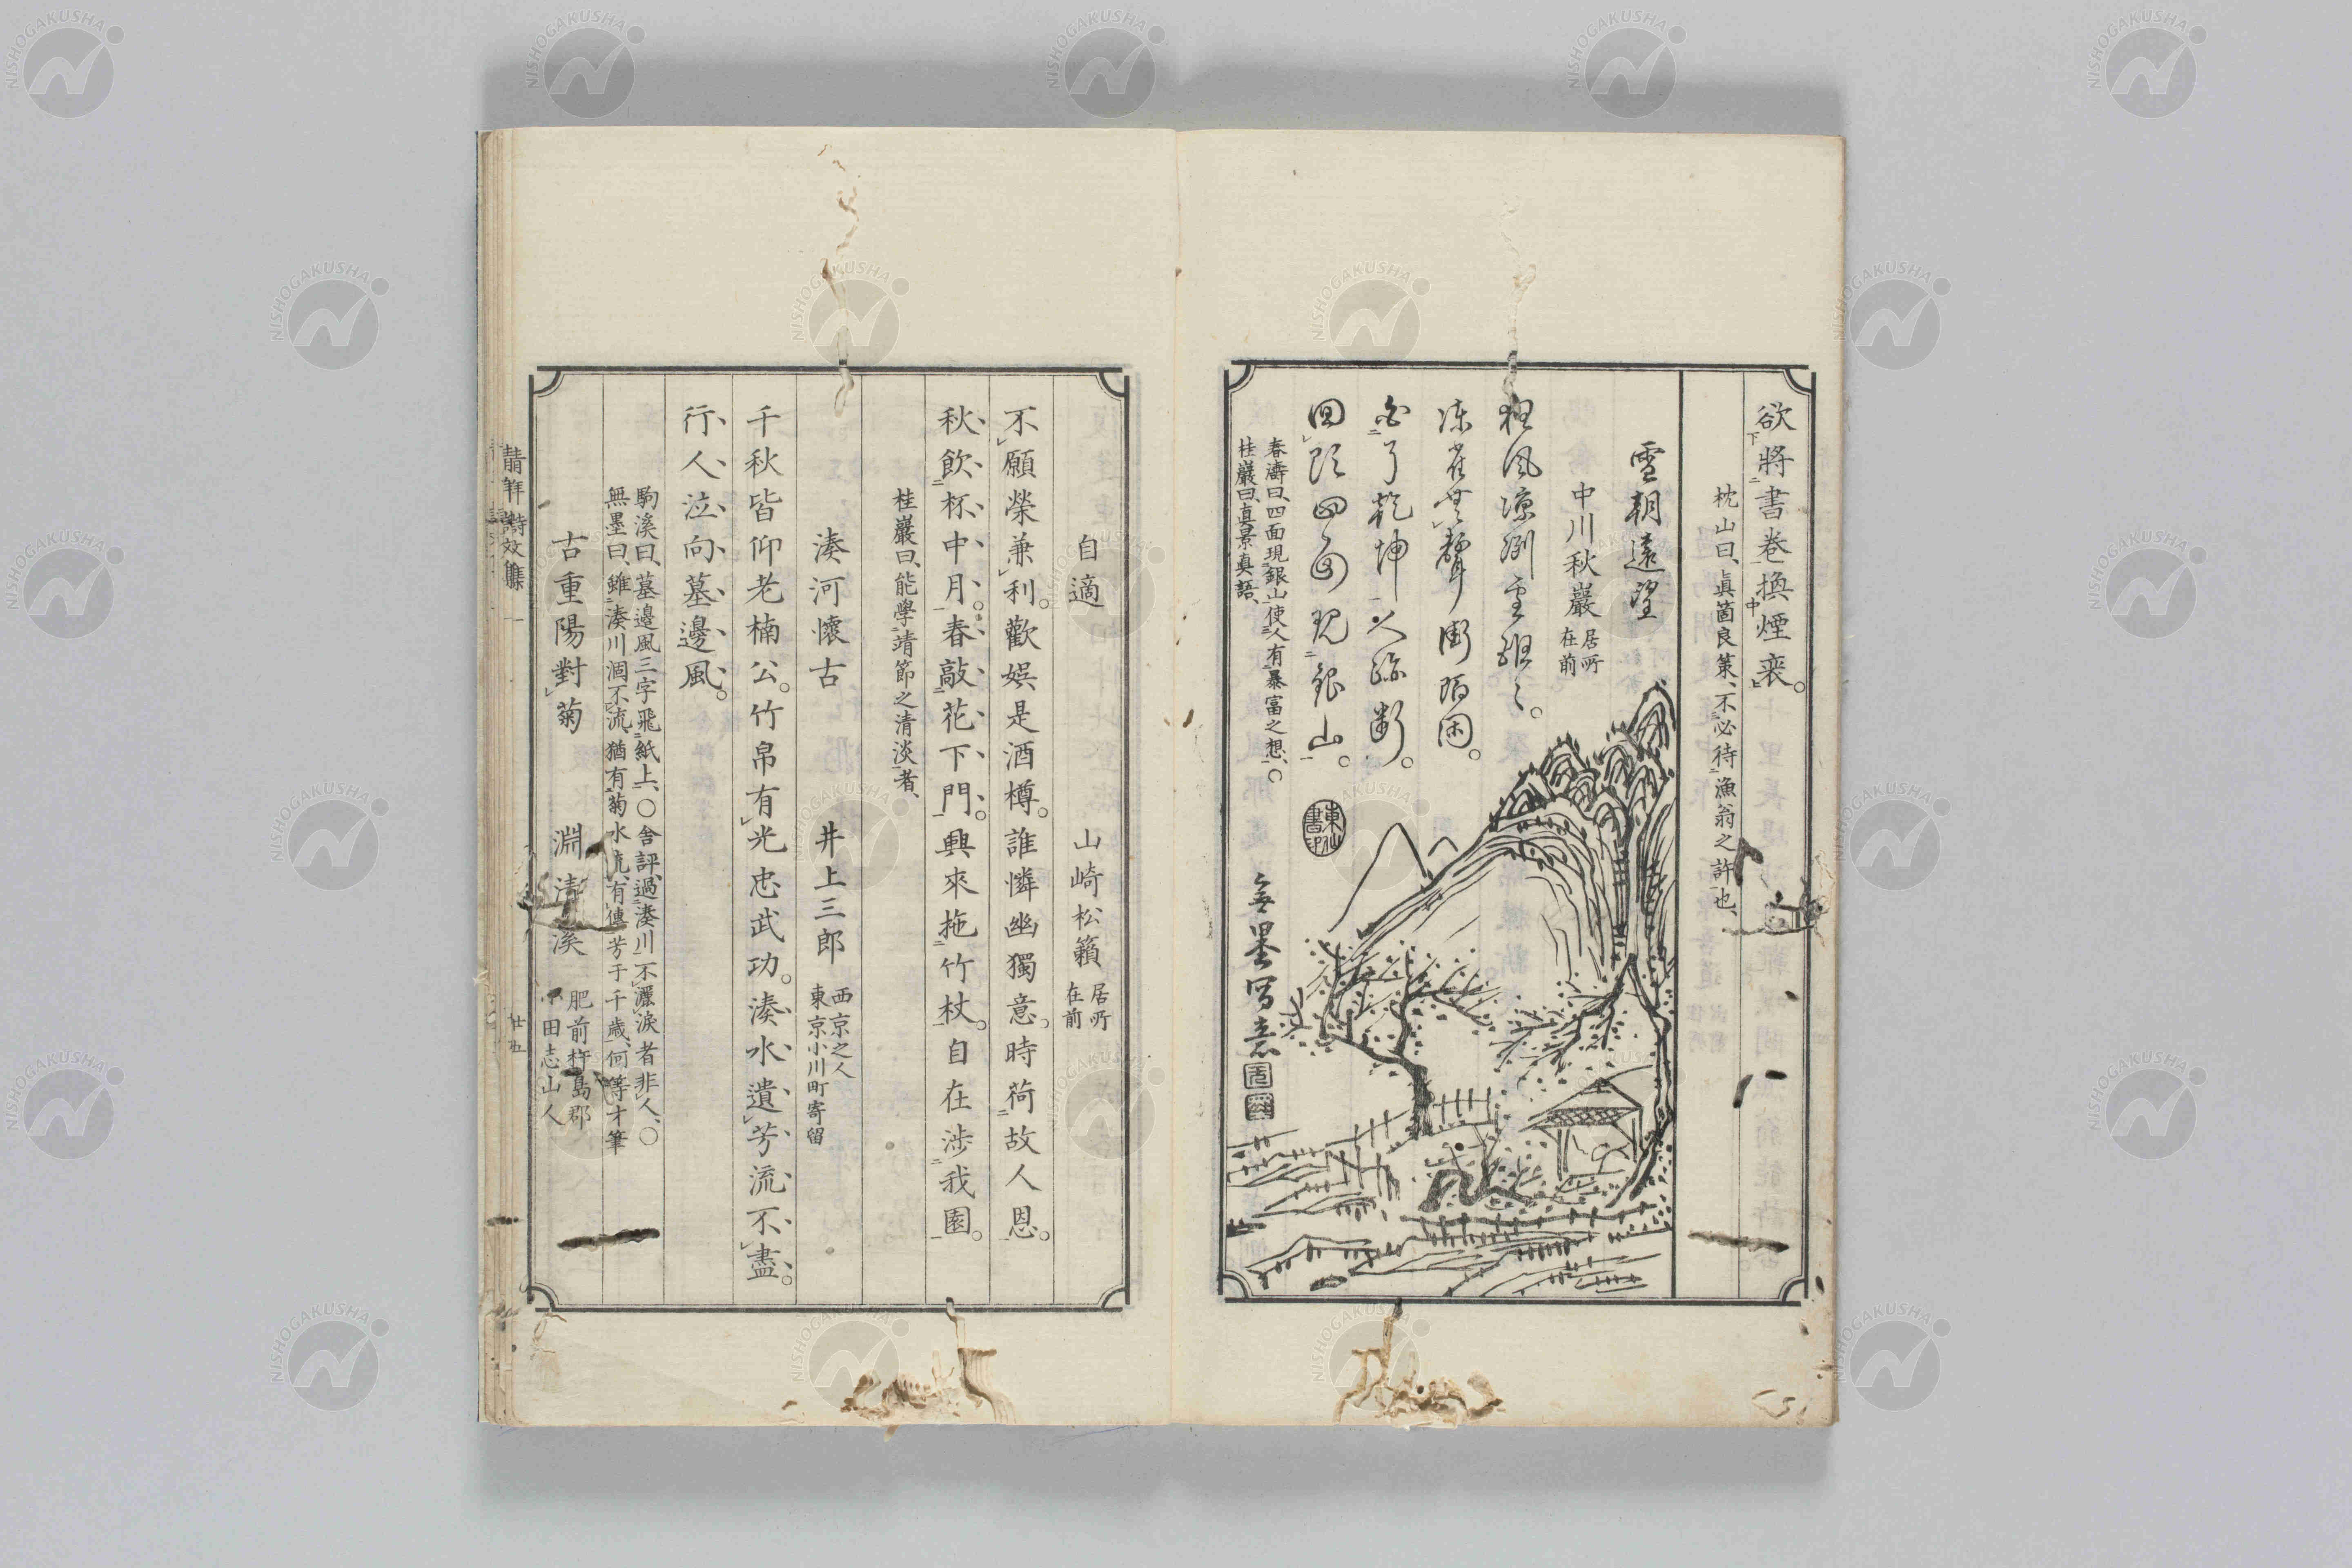 欲將書卷換煙蓑。
枕山曰、眞箇良策、不必待漁翁之許也、
雪朝遠望
中川秋巖 居所在前
狂風凉冽雪
凍雀無聲街陌閑。
乾坤人跡断。
回頭四面現銀山。
春濤曰、四面現銀山、使人有暴富之想、○
桂巖曰、眞景眞語、
無墨寫意
自適 山崎松籟 居所在前
不願榮兼利。歡娯是酒樽。誰憐幽獨意。時荷故人恩。
秋飲杯中月。春敲花下門。興來拖竹杖。自在涉我園。
桂巖曰、能學靖節之清淡者、
湊河懷古 井上三郎 西京之人 東京小川町寄留
千秋皆仰老楠公。竹帛有光忠武功。湊水遺芳流不盡。
行人泣向墓邊風。
駒溪曰、墓邊風三字飛紙上、○舍評、過湊川不灑淚者非人、○
無墨曰、雖湊川涸不流、猶有菊水㐬、有傳芳于千歲、何等才筆
古重陽對菊 淵清溪 肥前杵島郡 中田志山人
廿五
NISHOGAKUSHA